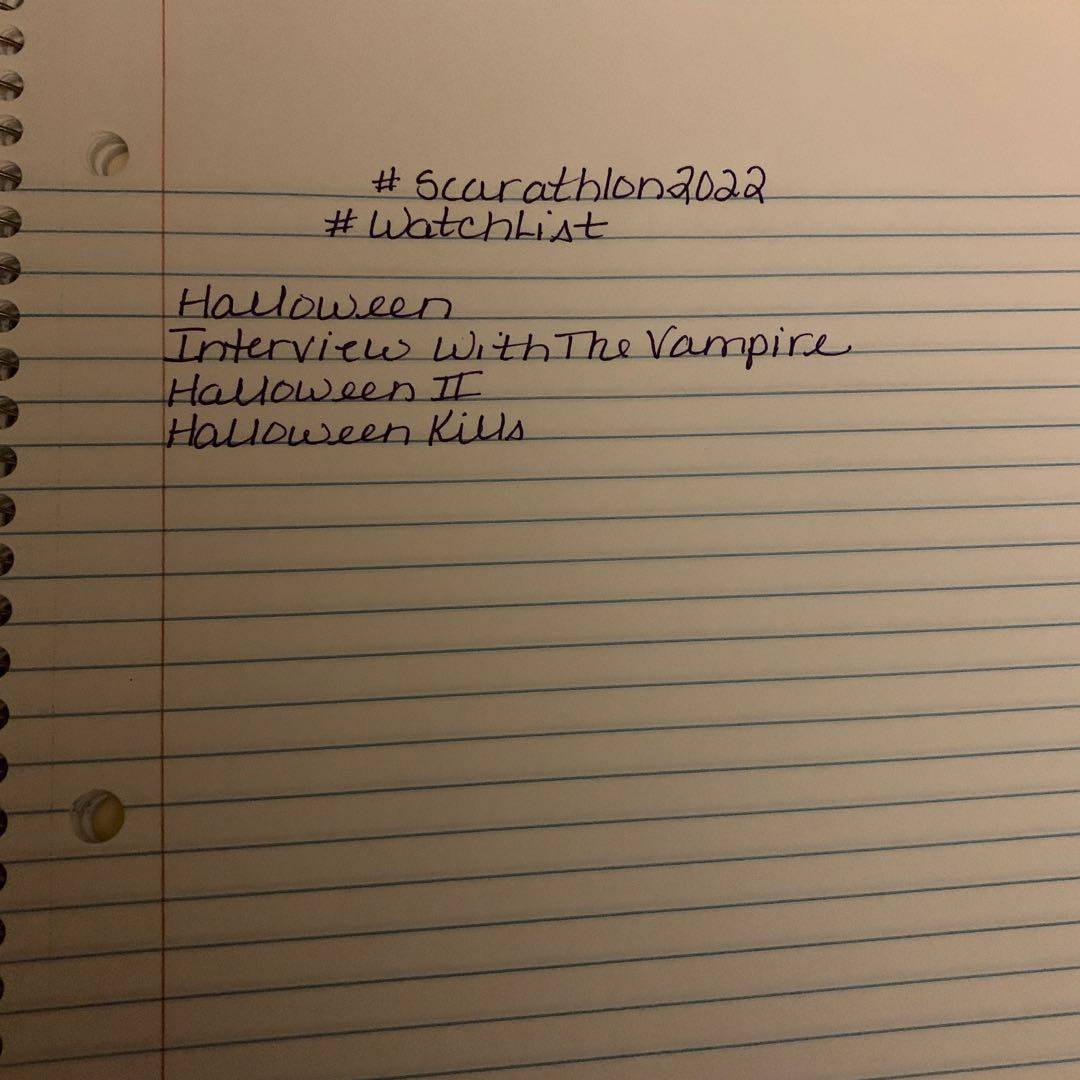 # Scarathlon2022
# WatchList
Halloween
Interview With The Vampire
Halloween II
Halloween Kills